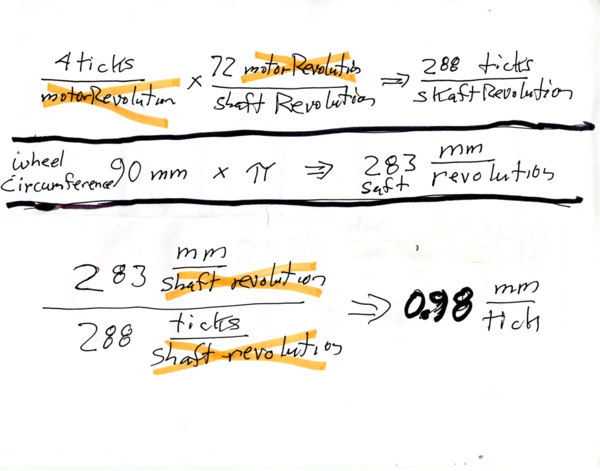 4 ticks / motorRevolution × 72 motorRevolutio / shaft Revolution ⇒ 288 ticks / skaft Revolution
wheel Circumference 90 mm × π ⇒ 283 saft mm / revolution
283 mm / shaft revolution
288 ticks / shaft revolution ⇒ 0.98 mm / tick